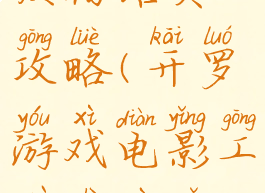 gōng lüè kāi luó
攻略(开罗
yóu xì diàn yǐng gōng
游戏电影工